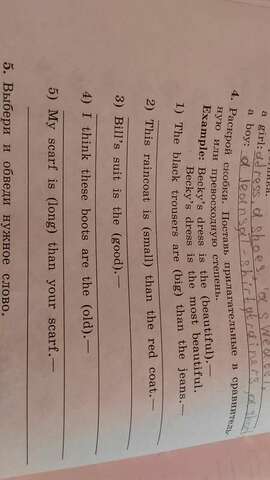 a girl: dress, a shoes, a
a boy: a
4. Раскрой скобки. Поставь прилагательные в сравнитель-
ную или превосходную степень.
Example: Becky's dress is the (beautiful).—
Becky's dress is the most beautiful.
1) The black trousers are (big) than the jeans.—
2) This raincoat is (small) than the red coat.—
3) Bill's suit is the (good).—
4) I think these boots are the (old).—
5) My scarf is (long) than your scarf.—
5. Выбери и обведи нужное слово.